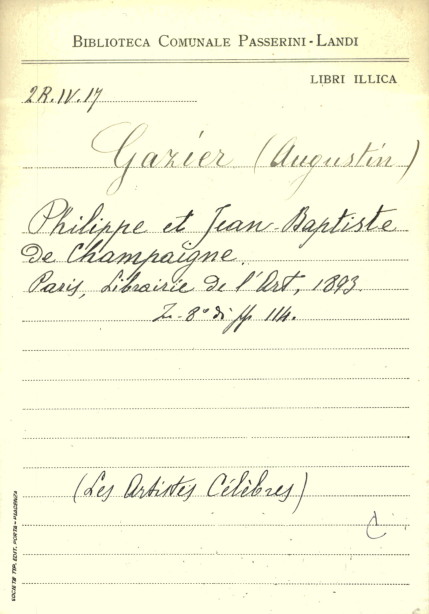 BIBLIOTECA COMUNALE PASSERINI-LANDI
LIBRI ILLICA
2R.IV.17
Gazier (Augustin)
Philippe et Jean-Baptiste
de Champaigne.
Paris, Librairie de l'Art, 1893.
in-8° di pp 114.
(Les Artistes Célèbres)
C
SOCIETÀ TIP. EDIT. PORTA - PIACENZA